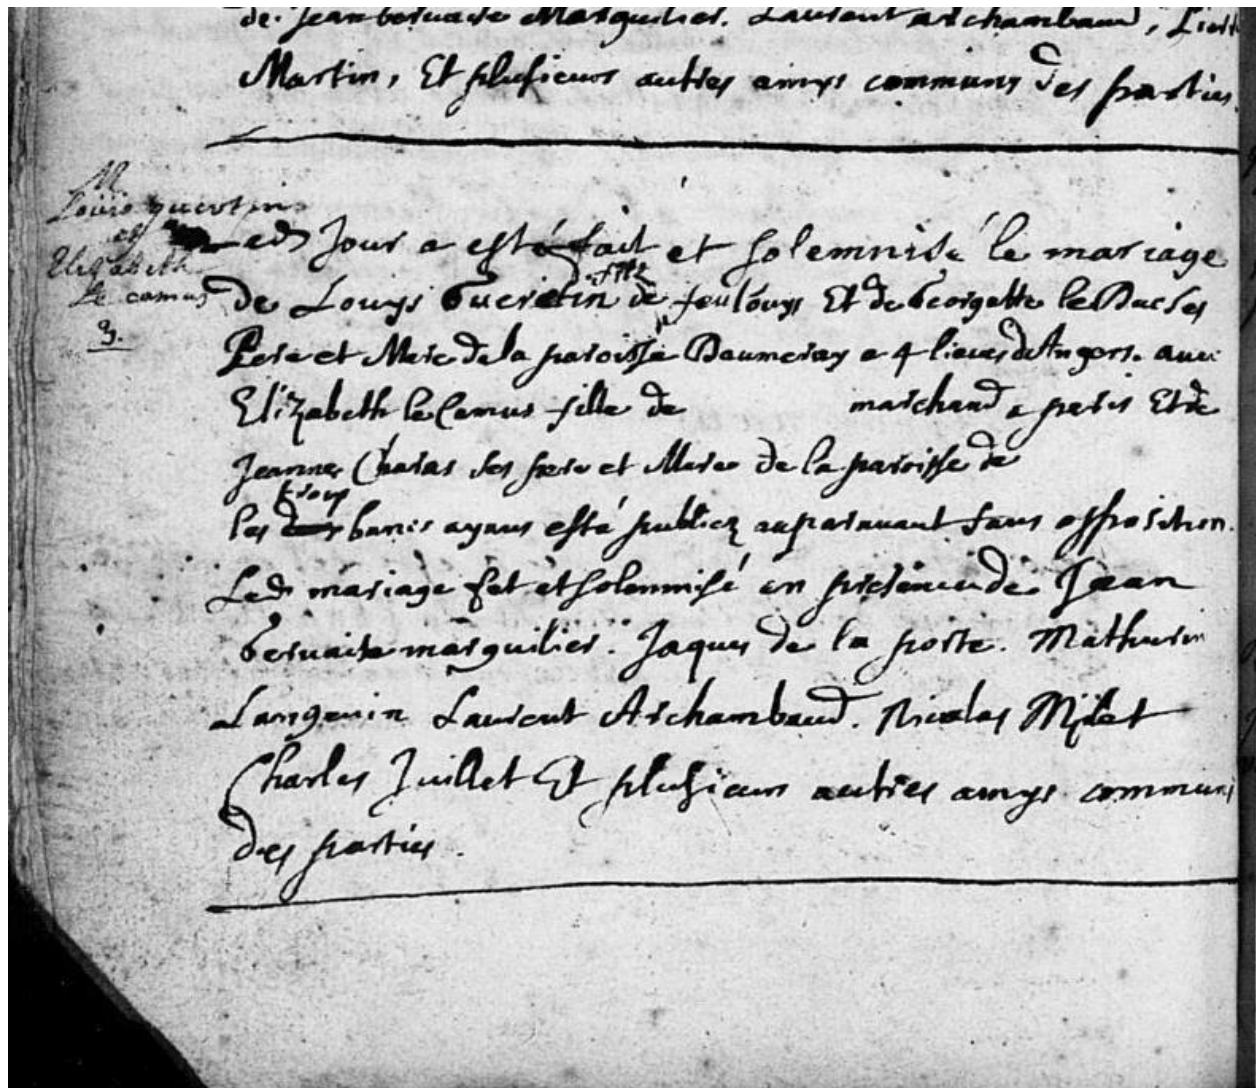 de Jean Gervaise Marguilier. Laurent archambaud,
Martin, Et plusieurs autres amys communs des parties
M
Louis guertin
et
Elizabeth
Le camus
3.
Led Jour a esté fait et solemnisé le mariage
de Louys Guertin filz de feu louys Et de Georgette le Duc ses
Pere et Mere de la paroisse Daumeray a 4 lieues d'Angers. avec
Elizabeth le Camus fille de marchand a paris Et de
Jeanne Charas ses pere et Mere de la paroisse de
les trois bancs ayans esté publiez auparavant sans opposition.
Led mariage fet et solemnisé en presence de Jean
Gervaise marguilier. Jaques de la porte. Mathurin
Langevin Laurent Archambaud. Nicolas Milet
Charles Juillet Et plusieurs autres amys communs
des parties.